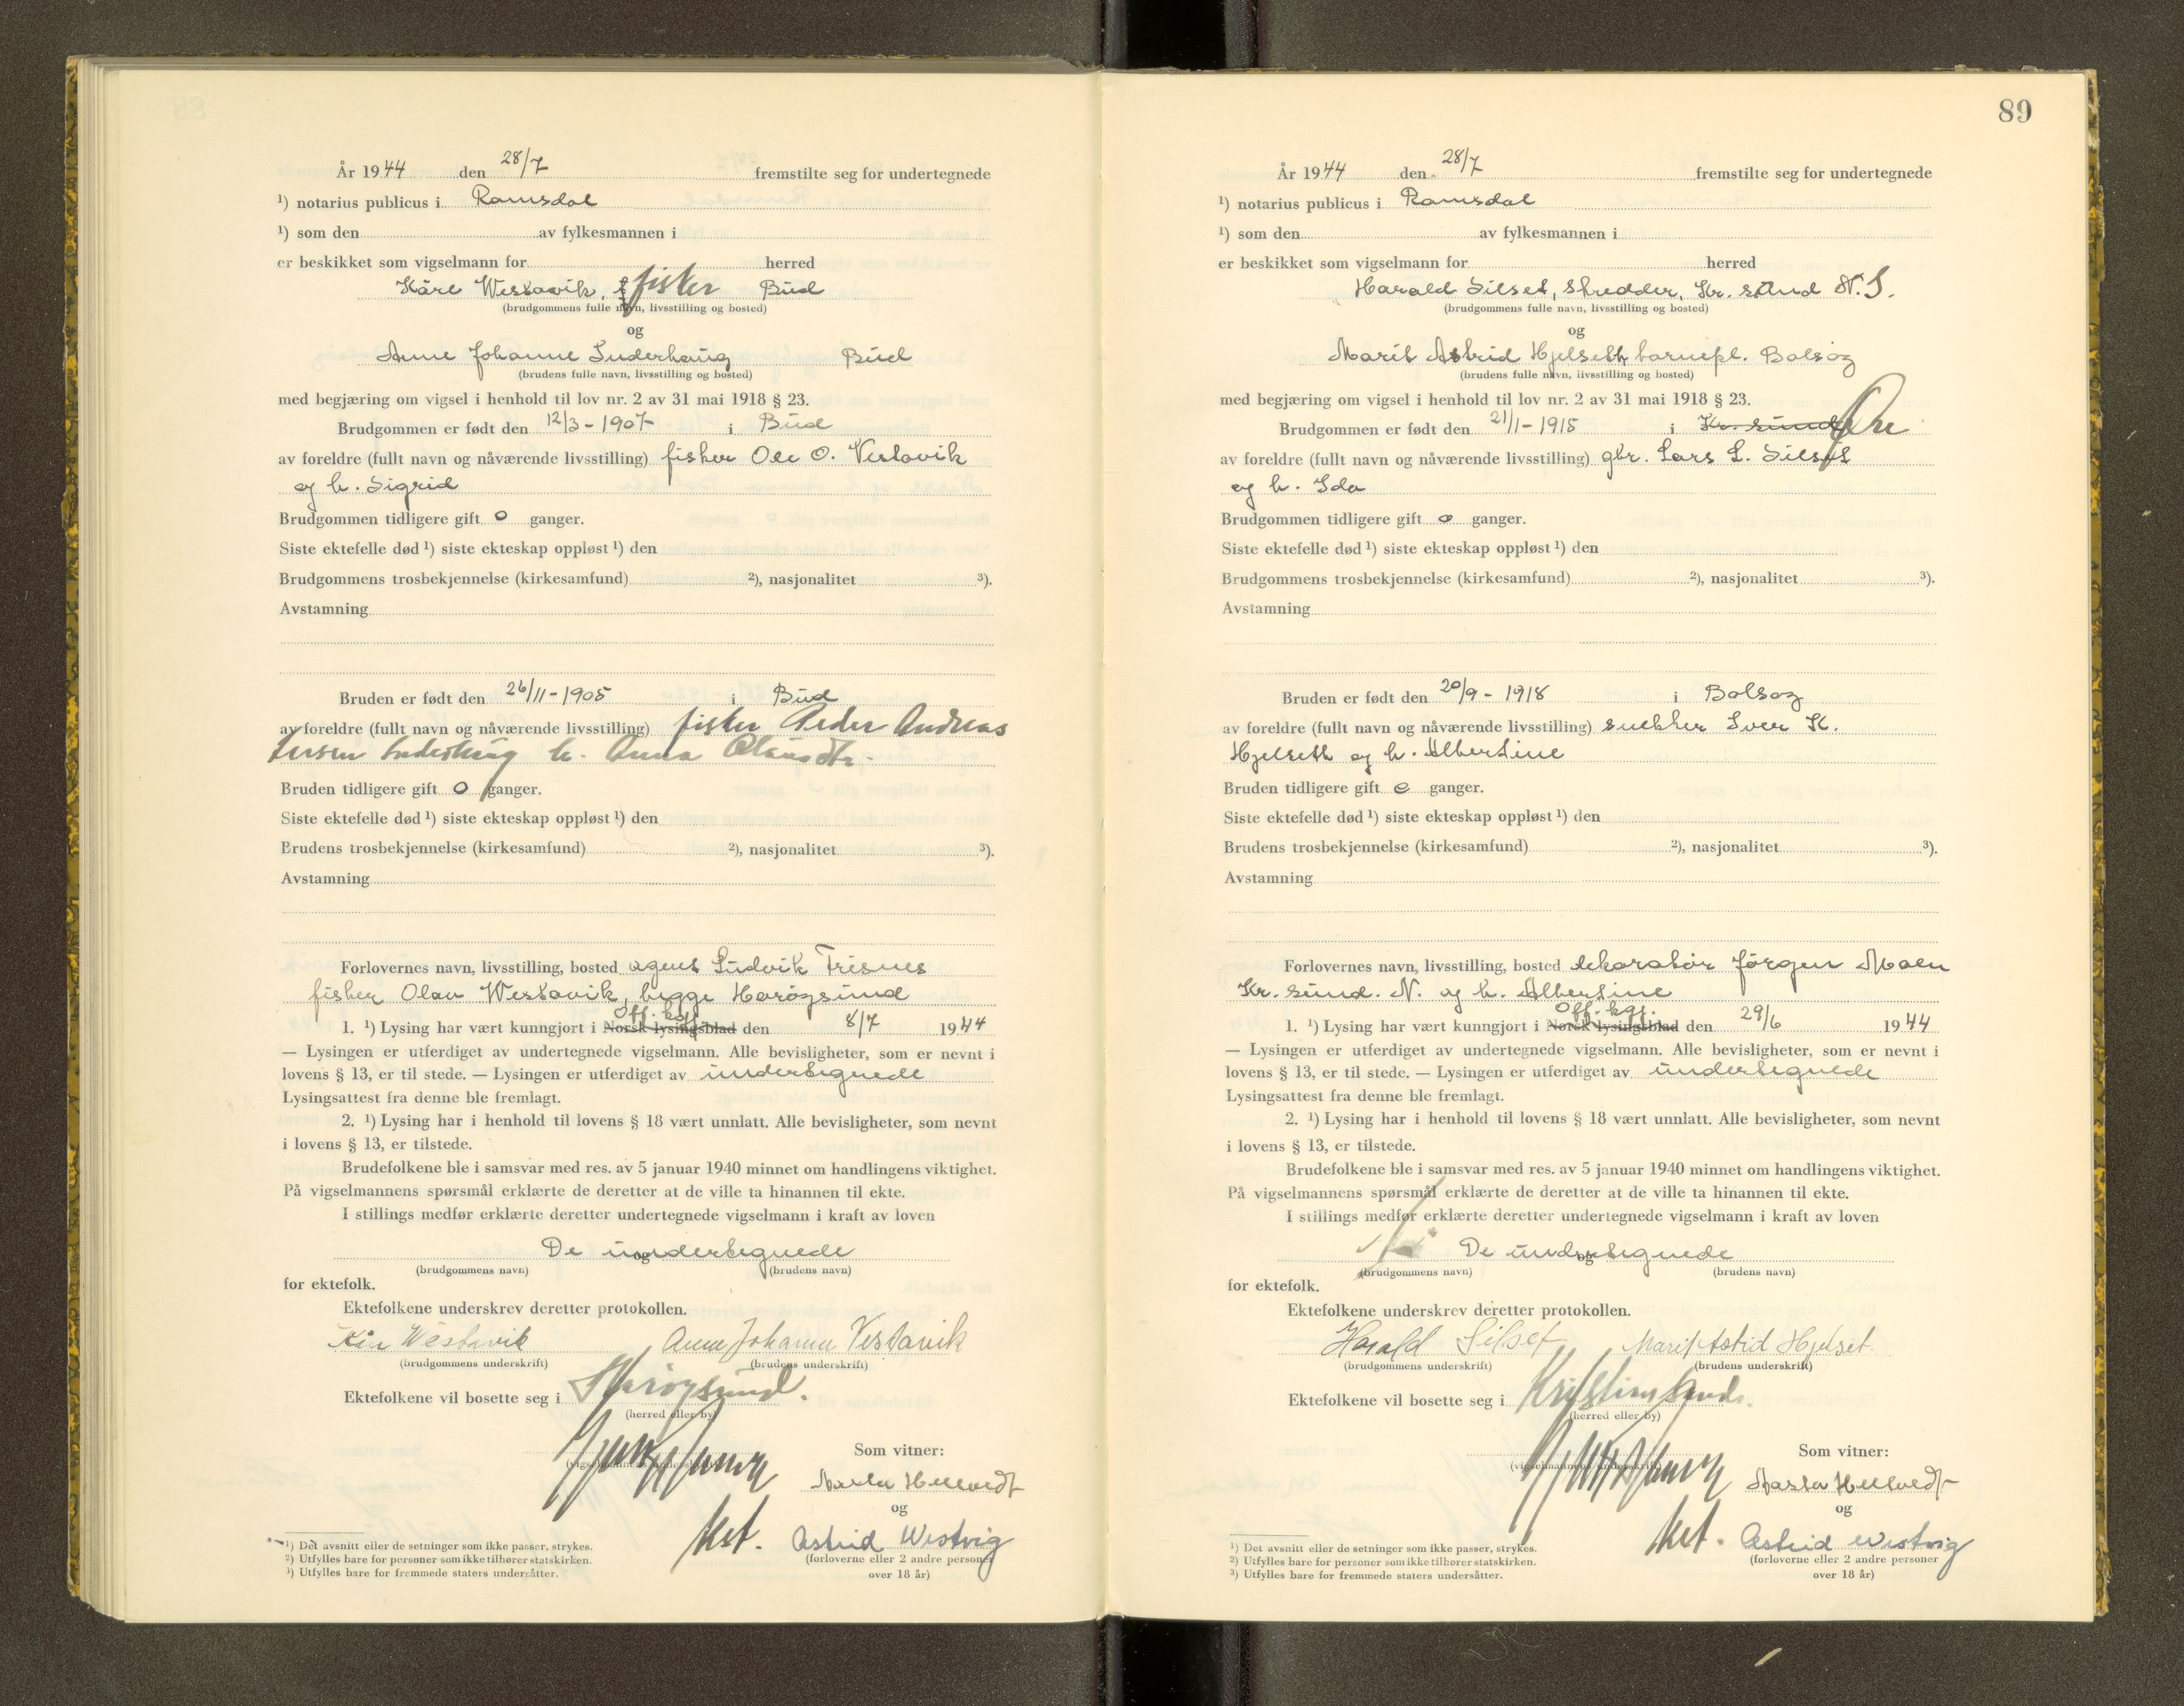 År 1944 den 28/7 fremstilte seg for undertegnede
¹) notarius publicus i Romsdal
¹) som den av fylkesmannen i
er beskikket som vigselmann for herred
Kåre Westavik, fisker Bud
(brudgommens fulle navn, livsstilling og bosted)
og
Anne Johanne Inderhaug Bud
(brudens fulle navn, livsstilling og bosted)
med begjæring om vigsel i henhold til lov nr. 2 av 31 mai 1918 § 23.
Brudgommen er født den 12/3 - 1907 i Bud
av foreldre (fullt navn og nåværende livsstilling) fisker Ole O. Vestavik
og h. Sigrid
Brudgommen tidligere gift 0 ganger.
Siste ektefelle død ¹) siste ekteskap oppløst ¹) den
Brudgommens trosbekjennelse (kirkesamfund) ²), nasjonalitet ³).
Avstamning
Bruden er født den 26/11 - 1905 i Bud
av foreldre (fullt navn og nåværende livsstilling) fisker Peder Andreas
Inderhaug h. Anna
Bruden tidligere gift 0 ganger.
Siste ektefelle død ¹) siste ekteskap oppløst ¹) den
Brudens trosbekjennelse (kirkesamfund) ²), nasjonalitet ³).
Avstamning
Forlovernes navn, livsstilling, bosted agent Ludvik
fisker Olav Westavik, begge Harøysund
Off. kgj.
1. ¹) Lysing har vært kunngjort i Norsk lysingsblad den 8/7 1944
— Lysingen er utferdiget av undertegnede vigselmann. Alle bevisligheter, som er nevnt i
lovens § 13, er til stede. — Lysingen er utferdiget av undertegnede
Lysingsattest fra denne ble fremlagt.
2. ¹) Lysing har i henhold til lovens § 18 vært unnlatt. Alle bevisligheter, som nevnt
i lovens § 13, er tilstede.
Brudefolkene ble i samsvar med res. av 5 januar 1940 minnet om handlingens viktighet.
På vigselmannens spørsmål erklærte de deretter at de ville ta hinannen til ekte.
I stillings medfør erklærte deretter undertegnede vigselmann i kraft av loven
De undertegnede
og
(brudgommens navn) (brudens navn)
for ektefolk.
Ektefolkene underskrev deretter protokollen.
Westavik Anne Johanne Vestavik
(brudgommens underskrift) (brudens underskrift)
Ektefolkene vil bosette seg i Harøysund.
(herred eller by)
(vigselmannens underskrift)
Som vitner:
og
kst. Astrid Westvig
(forloverne eller 2 andre personer
over 18 år)
¹) Det avsnitt eller de setninger som ikke passer, strykes.
²) Utfylles bare for personer som ikke tilhører statskirken.
³) Utfylles bare for fremmede staters undersåtter.
89
År 1944 den 28/7 fremstilte seg for undertegnede
¹) notarius publicus i Romsdal
¹) som den av fylkesmannen i
er beskikket som vigselmann for herred
Harald Silset, skredder, Kr. sund N.
(brudgommens fulle navn, livsstilling og bosted)
og
Marit Astrid Hjelseth, barnepl. Bolsøy
(brudens fulle navn, livsstilling og bosted)
med begjæring om vigsel i henhold til lov nr. 2 av 31 mai 1918 § 23.
Brudgommen er født den 21/1 - 1915 i Kr. sund Øre
av foreldre (fullt navn og nåværende livsstilling) gbr. Lars L. Silset
og h. Ida
Brudgommen tidligere gift 0 ganger.
Siste ektefelle død ¹) siste ekteskap oppløst ¹) den
Brudgommens trosbekjennelse (kirkesamfund) ²), nasjonalitet ³).
Avstamning
Bruden er født den 20/9 - 1918 i Bolsøy
av foreldre (fullt navn og nåværende livsstilling) snekker Iver K.
Hjelseth og h. Albertine
Bruden tidligere gift 0 ganger.
Siste ektefelle død ¹) siste ekteskap oppløst ¹) den
Brudens trosbekjennelse (kirkesamfund) ²), nasjonalitet ³).
Avstamning
Forlovernes navn, livsstilling, bosted dekoratør Jørgen Moen
Kr. sund. N. og h. Albertine
Off. kgj.
1. ¹) Lysing har vært kunngjort i Norsk lysingsblad den 29/6 1944
— Lysingen er utferdiget av undertegnede vigselmann. Alle bevisligheter, som er nevnt i
lovens § 13, er til stede. — Lysingen er utferdiget av undertegnede
Lysingsattest fra denne ble fremlagt.
2. ¹) Lysing har i henhold til lovens § 18 vært unnlatt. Alle bevisligheter, som nevnt
i lovens § 13, er tilstede.
Brudefolkene ble i samsvar med res. av 5 januar 1940 minnet om handlingens viktighet.
På vigselmannens spørsmål erklærte de deretter at de ville ta hinannen til ekte.
I stillings medfør erklærte deretter undertegnede vigselmann i kraft av loven
De undertegnede
og
(brudgommens navn) (brudens navn)
for ektefolk.
Ektefolkene underskrev deretter protokollen.
Harald Silset Marit Astrid Hjelset
(brudgommens underskrift) (brudens underskrift)
Ektefolkene vil bosette seg i Kristiansund.
(herred eller by)
(vigselmannens underskrift)
Som vitner:
og
kst. Astrid Westvig
(forloverne eller 2 andre personer
over 18 år)
¹) Det avsnitt eller de setninger som ikke passer, strykes.
²) Utfylles bare for personer som ikke tilhører statskirken.
³) Utfylles bare for fremmede staters undersåtter.